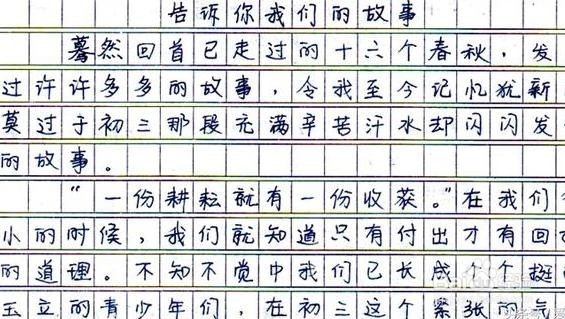 告诉你我们的故事
蓦然回首已走过的十六个春秋，发
过许许多多的故事，令我至今记忆犹新
莫过于初三那段充满辛苦汗水却闪闪发
的故事。
“一份耕耘就有一份收获。”在我们
小的时候，我们就知道只有付出才有回
的道理。不知不觉中我们已长成个个挺
玉立的青少年们，在初三这个紧张的气